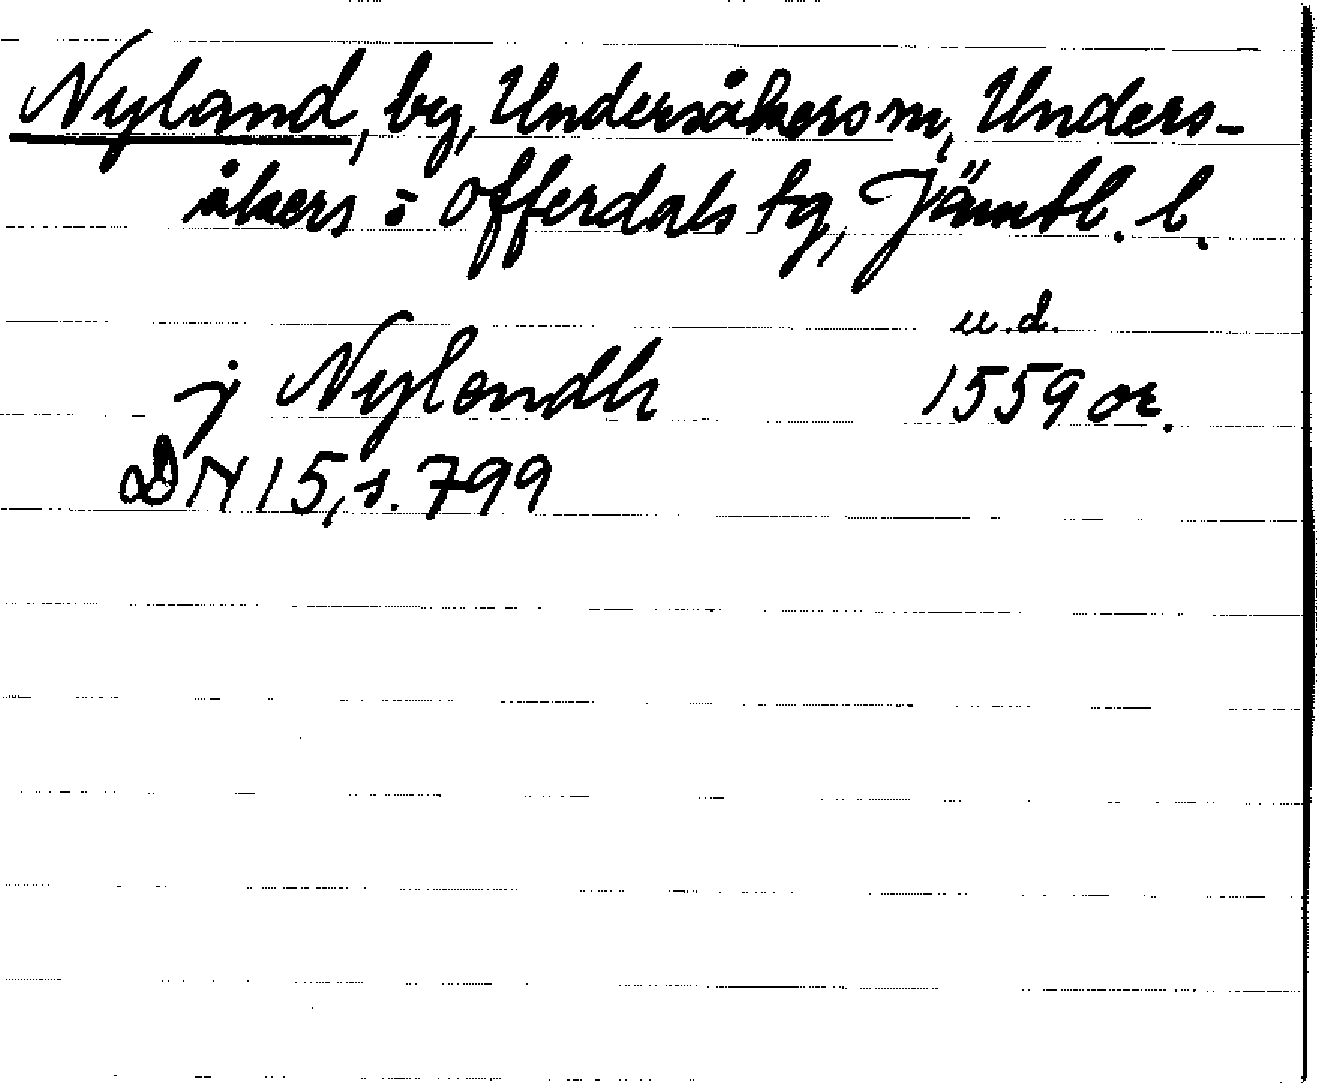 Nyland, by, Undersåkers sn, Unders-
åkers o Offerdals tg, Jämtl. l.
u.d.
j Nylendh 1559 or.
DN 15, s. 799